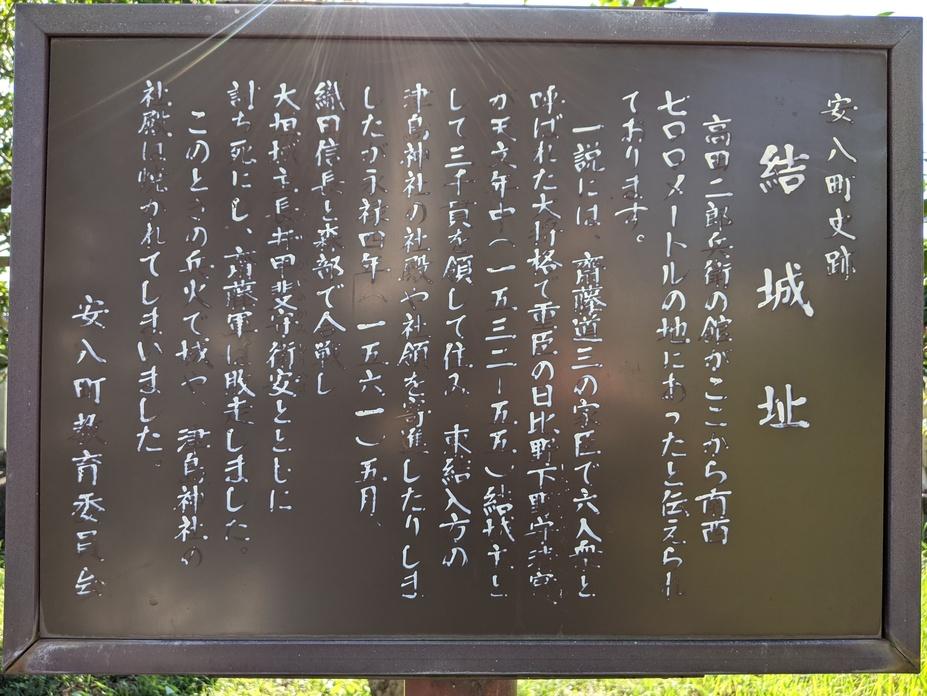 安八町史跡
結城址
高田二郎兵衛の館がここから南西
七〇〇メートルの地にあったと伝えられ
ております。
一説には、齋藤道三の家臣で六人衆と
呼ばれた大垣格で重臣の日比野下野守清実
が天文年中(一五三二-五五)結城主と
して三千貫を領して住み 東結入方の
津島神社の社殿や社領を寄進したりしま
したが永禄四年(一五六一)五月、
織田信長と森部で合戦し
大垣城主長井甲斐守衛安とともに
討ち死にし、齋藤軍は敗走しました。
このときの兵火で城や、津島神社の
社殿は焼かれてしまいました。
安八町教育委員会